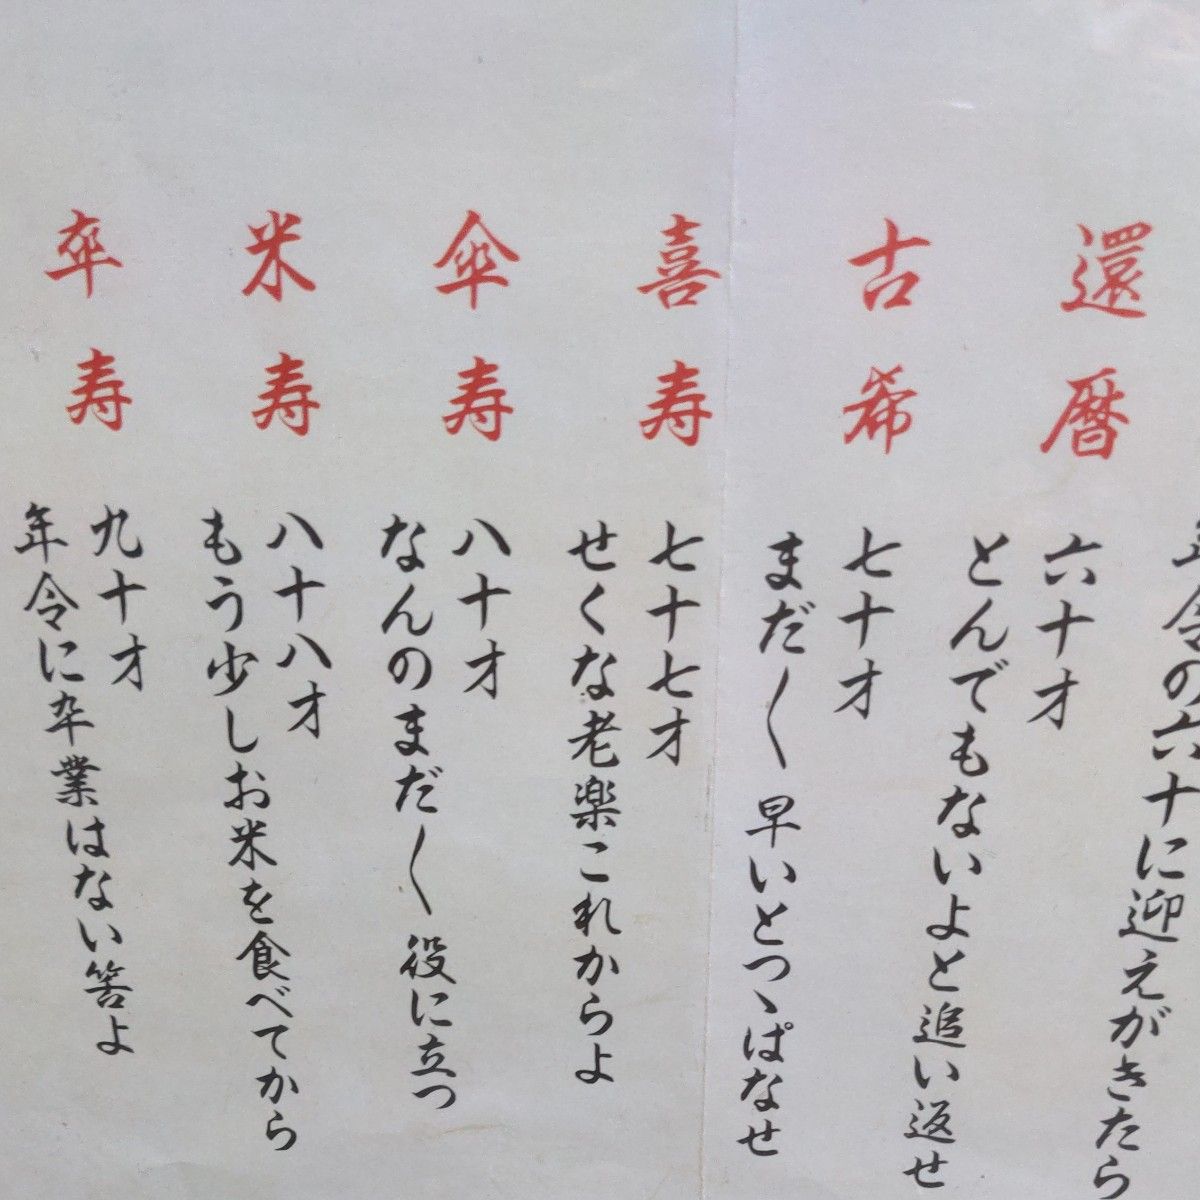 年令の六十に迎えがきたら
還暦
六十才
とんでもないよと追い返せ
古希
七十才
まだ〱 早いとつヽぱなせ
喜寿
七十七才
せくな老楽これからよ
傘寿
八十才
なんのまだ〱 役に立つ
米寿
八十八才
もう少しお米を食べてから
卒寿
九十才
年令に卒業はない筈よ